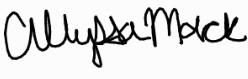 Allyssa Mack